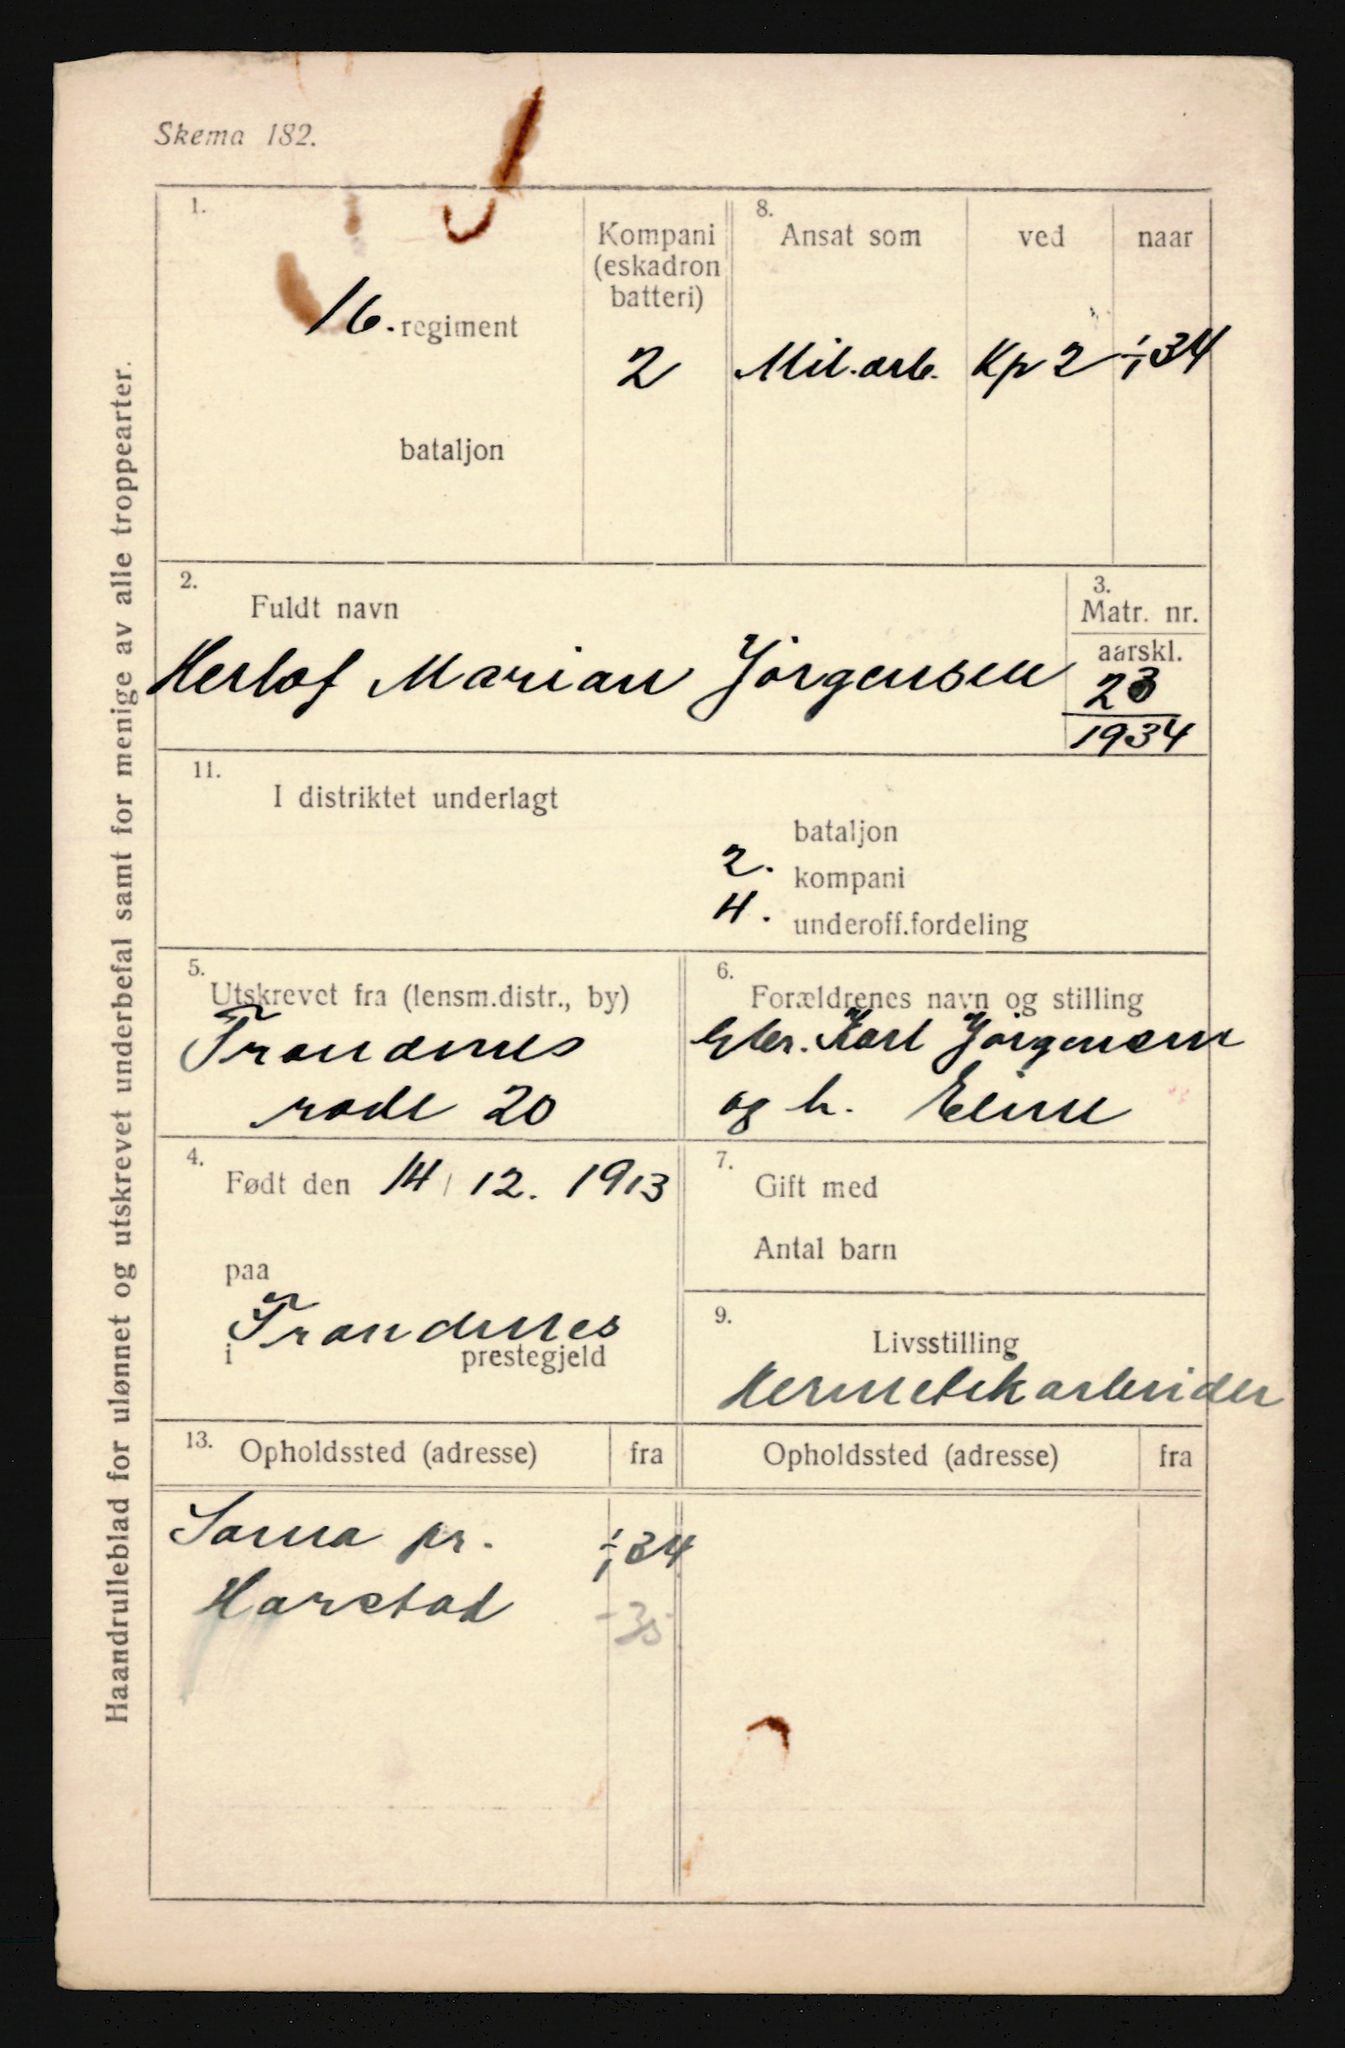 Skema 182.
Haandrulleblad for ulønnet og utskrevet underbefal samt for menige av alle troppearter.
1.
16. regiment
bataljon
Kompani
(eskadron
batteri)
2
8.
Ansat som ved naar
Mil.arb. Kp 2 1/1 34
2.
Fuldt navn
Herlof Marian Jörgensen
3.
Matr. nr.
aarskl.
23
1934
11.
I distriktet underlagt
bataljon
2. kompani
4. underoff.fordeling
5.
Utskrevet fra (lensm.distr., by)
Trondenes
rode 20
6.
Forældrenes navn og stilling
Karl Jörgensen
og h. Eline
4.
Født den 14/12. 1913
paa
Trondenes
i prestegjeld
7.
Gift med
Antal barn
9.
Livsstilling
Hermetikarbeider
13.
Opholdssted (adresse) fra Opholdssted (adresse) fra
Sama pr. 1/1 34
Harstad - 35